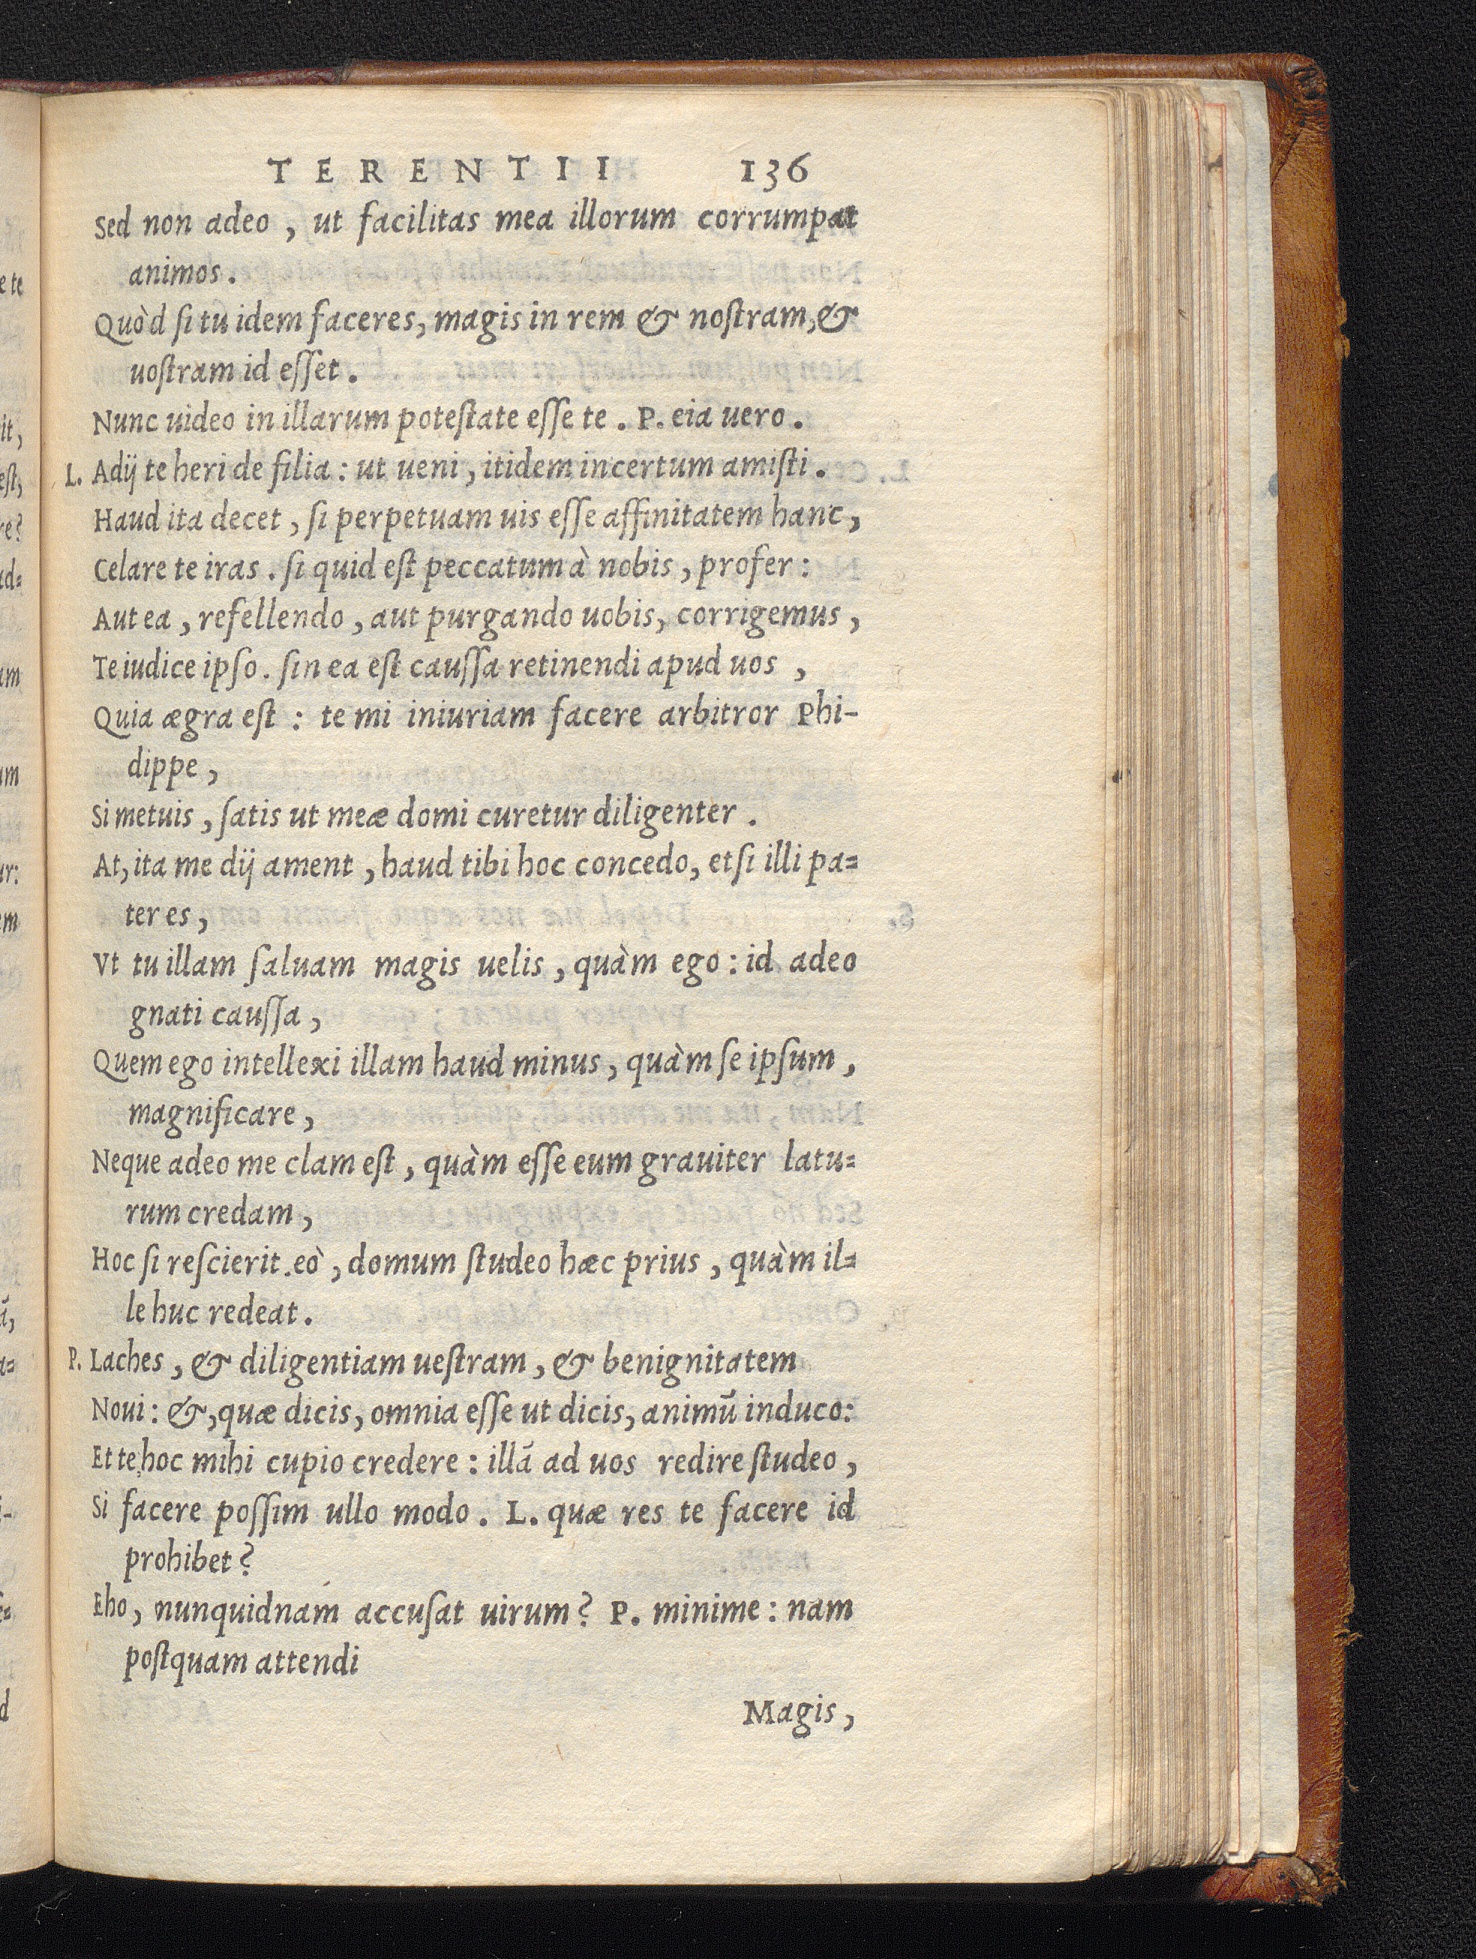 TERENTII 136
Sed non adeo, ut facilitas mea illorum corrumpat
animos.
Quòd ſi tu idem faceres, magis in rem & noſtram, &
uoſtram id eſſet.
Nunc uideo in illarum poteſtate eſſe te. P. eia uero.
L. Adij te heri de filia: ut ueni, itidem incertum amiſti.
Haud ita decet, ſi perpetuam uis eſſe affinitatem hanc,
Celare te iras. ſi quid eſt peccatum à nobis, profer:
Aut ea, refellendo, aut purgando uobis, corrigemus,
Te iudice ipſo. ſin ea eſt cauſſa retinendi apud uos,
Quia ægra eſt: te mi iniuriam facere arbitror Phi-
dippe,
Si metuis, ſatis ut meæ domi curetur diligenter.
At, ita me dij ament, haud tibi hoc concedo, etſi illi pa=
ter es,
Vt tu illam ſaluam magis uelis, quàm ego: id adeo
gnati cauſſa,
Quem ego intellexi illam haud minus, quàm ſe ipſum,
magnificare,
Neque adeo me clam eſt, quàm eſſe eum grauiter latu=
rum credam,
Hoc ſi reſcierit. eò, domum ſtudeo hæc prius, quàm il=
le huc redeat.
P. Laches, & diligentiam ueſtram, & benignitatem
Noui: &, quæ dicis, omnia eſſe ut dicis, animū induco:
Et te hoc mihi cupio credere: illā ad uos redire ſtudeo,
Si facere poſſim ullo modo. L. quæ res te facere id
prohibet?
Eho, nunquidnam accuſat uirum? P. minime: nam
poſtquam attendi
Magis,